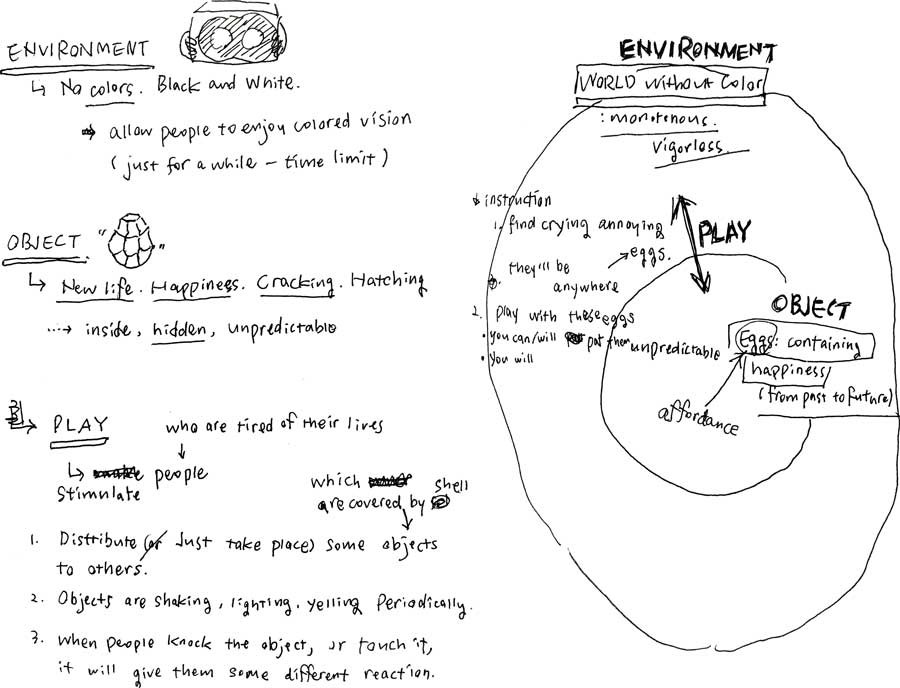 ENVIRONMENT
↳ No colors. Black and White.
→ allow people to enjoy colored vision
(just for a while – time limit)
OBJECT. " "
↳ New life. Happiness. Cracking. Hatching
...→ inside, hidden, unpredictable
→ PLAY
who are tired of their lives
↳ people
stimulate
which
shell
are covered by
1. Distribute (or Just take place) some objects
to others.
2. Objects are shaking, lighting, yelling periodically.
3. when people knock the object, or touch it,
it will give them some different reaction.
ENVIRONMENT
WORLD without color
: monotenous.
vigorless.
instruction
1. find crying annoying
eggs.
they'll be
anywhere
2. Play with these eggs
• you can/will put them
• You will
PLAY
OBJECT
unpredictable
Eggs: containing
happiness
(from past to future)
affordance